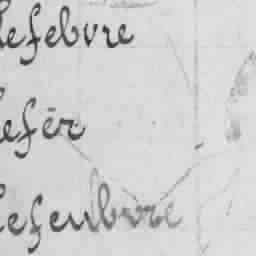 Lefebvre
Lefèr
Lefenbvre